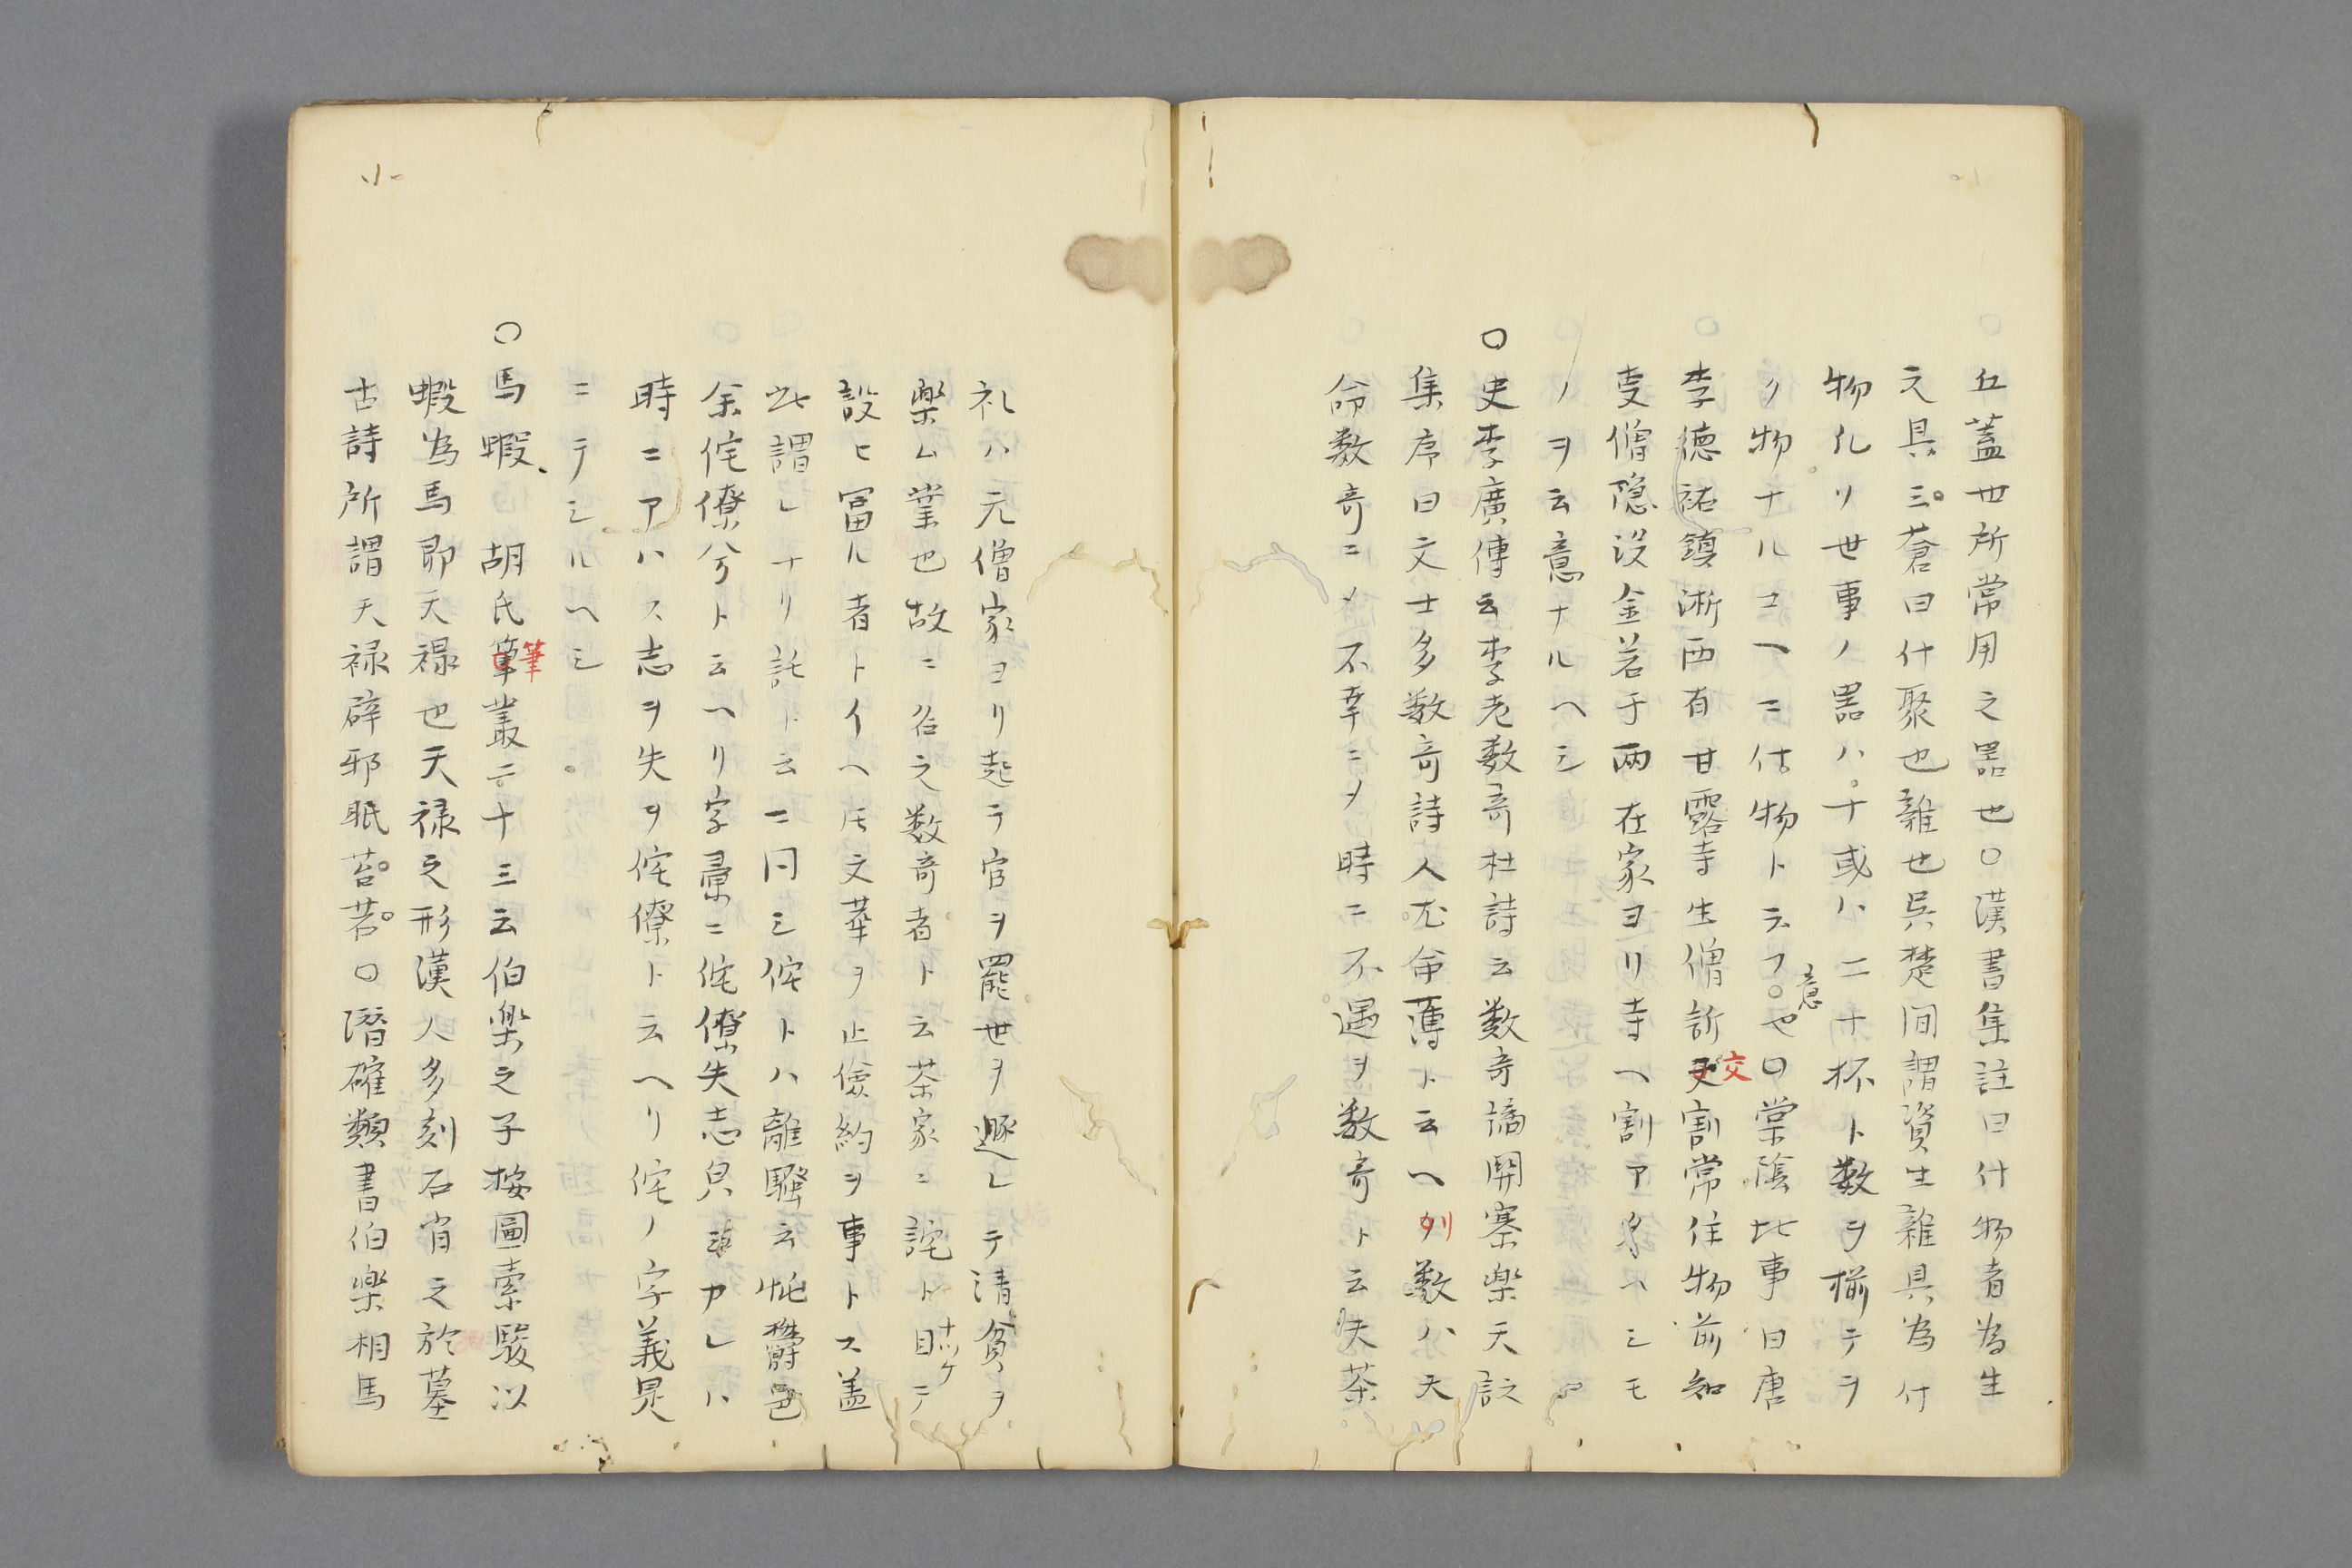 五蓋世所常用之器也〇漢書集註曰什物者為生
之具三蒼曰什聚也雜也呉楚間謂資生雜具為什
物凡リ世事ノ器ハ十或ハ二十杯ト数ヲ揃テヲ
ク物ナルユヘニ什物ト云フ意也〇棠陰比事曰唐
李徳祐鎮淅西有甘露寺生僧訴交割常住物前知
叓僧隠没金若于両在家ヨリ寺ヘ割アタヘシモ
ノヲ云意ナルヘシ
〇史李廣傳云李老数奇杜詩云数奇謫関寨楽天詩
集序曰文士多数奇詩人尤命薄ト云ヘリ数ハ天
命数奇ニメ不幸ニメ時ニ不遇ヲ数奇ト云夫茶
礼ハ元僧家ヨリ起テ官ヲ罷世ヲ遯レテ清貧ヲ
楽ム業也故ニ名之数奇者ト云茶家ニ詫ト目ナツケテ
設ヒ冨ル者トイヘ𪜈文華ヲ止儉約ヲ事トス盖
此謂レナリ託ト云ニ同シ侘トハ離騒云忳欝邑
余侘傺兮ト云ヘリ字彙ニ侘傺失志皃然カレハ
時ニアハス志ヲ失ヲ侘傺ト云ヘリ侘ノ字義是
ニテシルヘシ
〇馬蝦 胡氏筆叢二十三云伯楽之子按圖索駿以
蝦為馬即天禄也天禄之形漢人多刻石肖之於墓
古詩所謂天禄辟邪眠莓苔〇潛確類書伯楽相馬